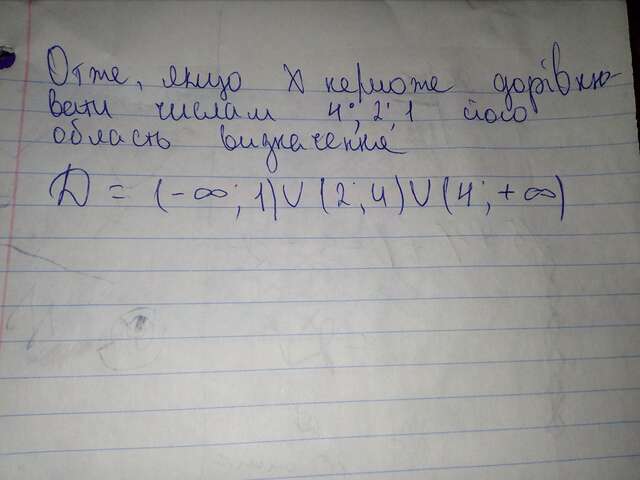 Отже, якщо X неможе дорівню-
вати числам 4; 2; 1 його
область визначення
D = (-∞; 1)∪(2; 4)∪(4; +∞)